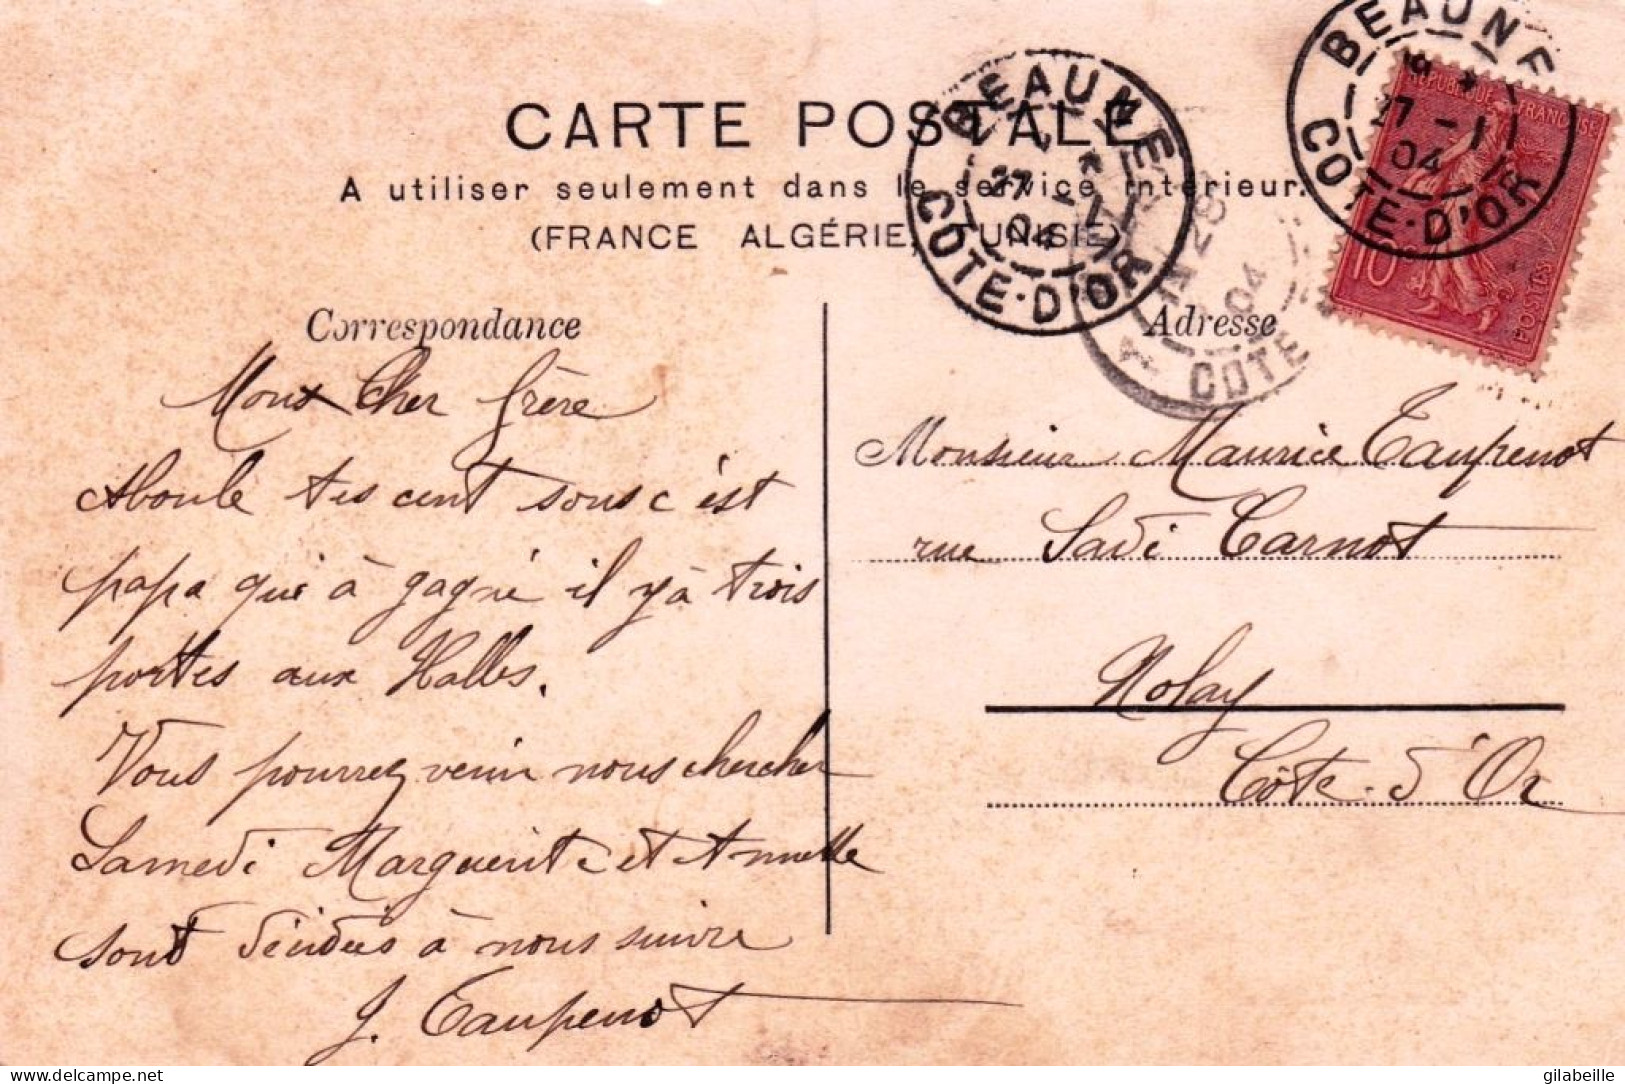 CARTE POSTALE
A utiliser seulement dans le service intérieur.
(FRANCE ALGÉRIE, TUNISIE)
BEAUNE
27 - 1
04
COTE-D'OR
BEAUNE
27 - 1
04
COTE-D'OR
28
04
COTE
REPUBLIQUE FRANÇAISE
10
POSTES
Correspondance
Mon Cher frère
Aboule tes cent sous c'est
papa qui à gagné il y à trois
portes aux Halles.
Vous pourrez venir nous chercher
Samedi Marguerite et Annette
sont décidées à nous suivre
J. Taupenot
Adresse
Monsieur Maurice Taupenot
rue Sadi Carnot
Nolay
Côte-d'Or
delcampe.net
gilabeille